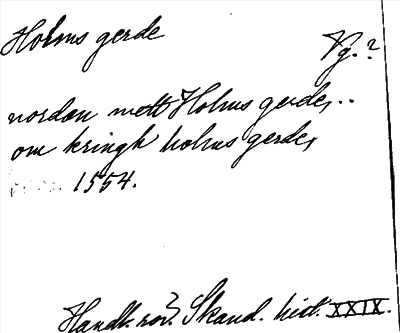 Holms gerde
Vg.?
norden mett Holms gerde, ..
om kringh holms gerde,
1554.
Handl. rör. Skand. hist. XXIX.